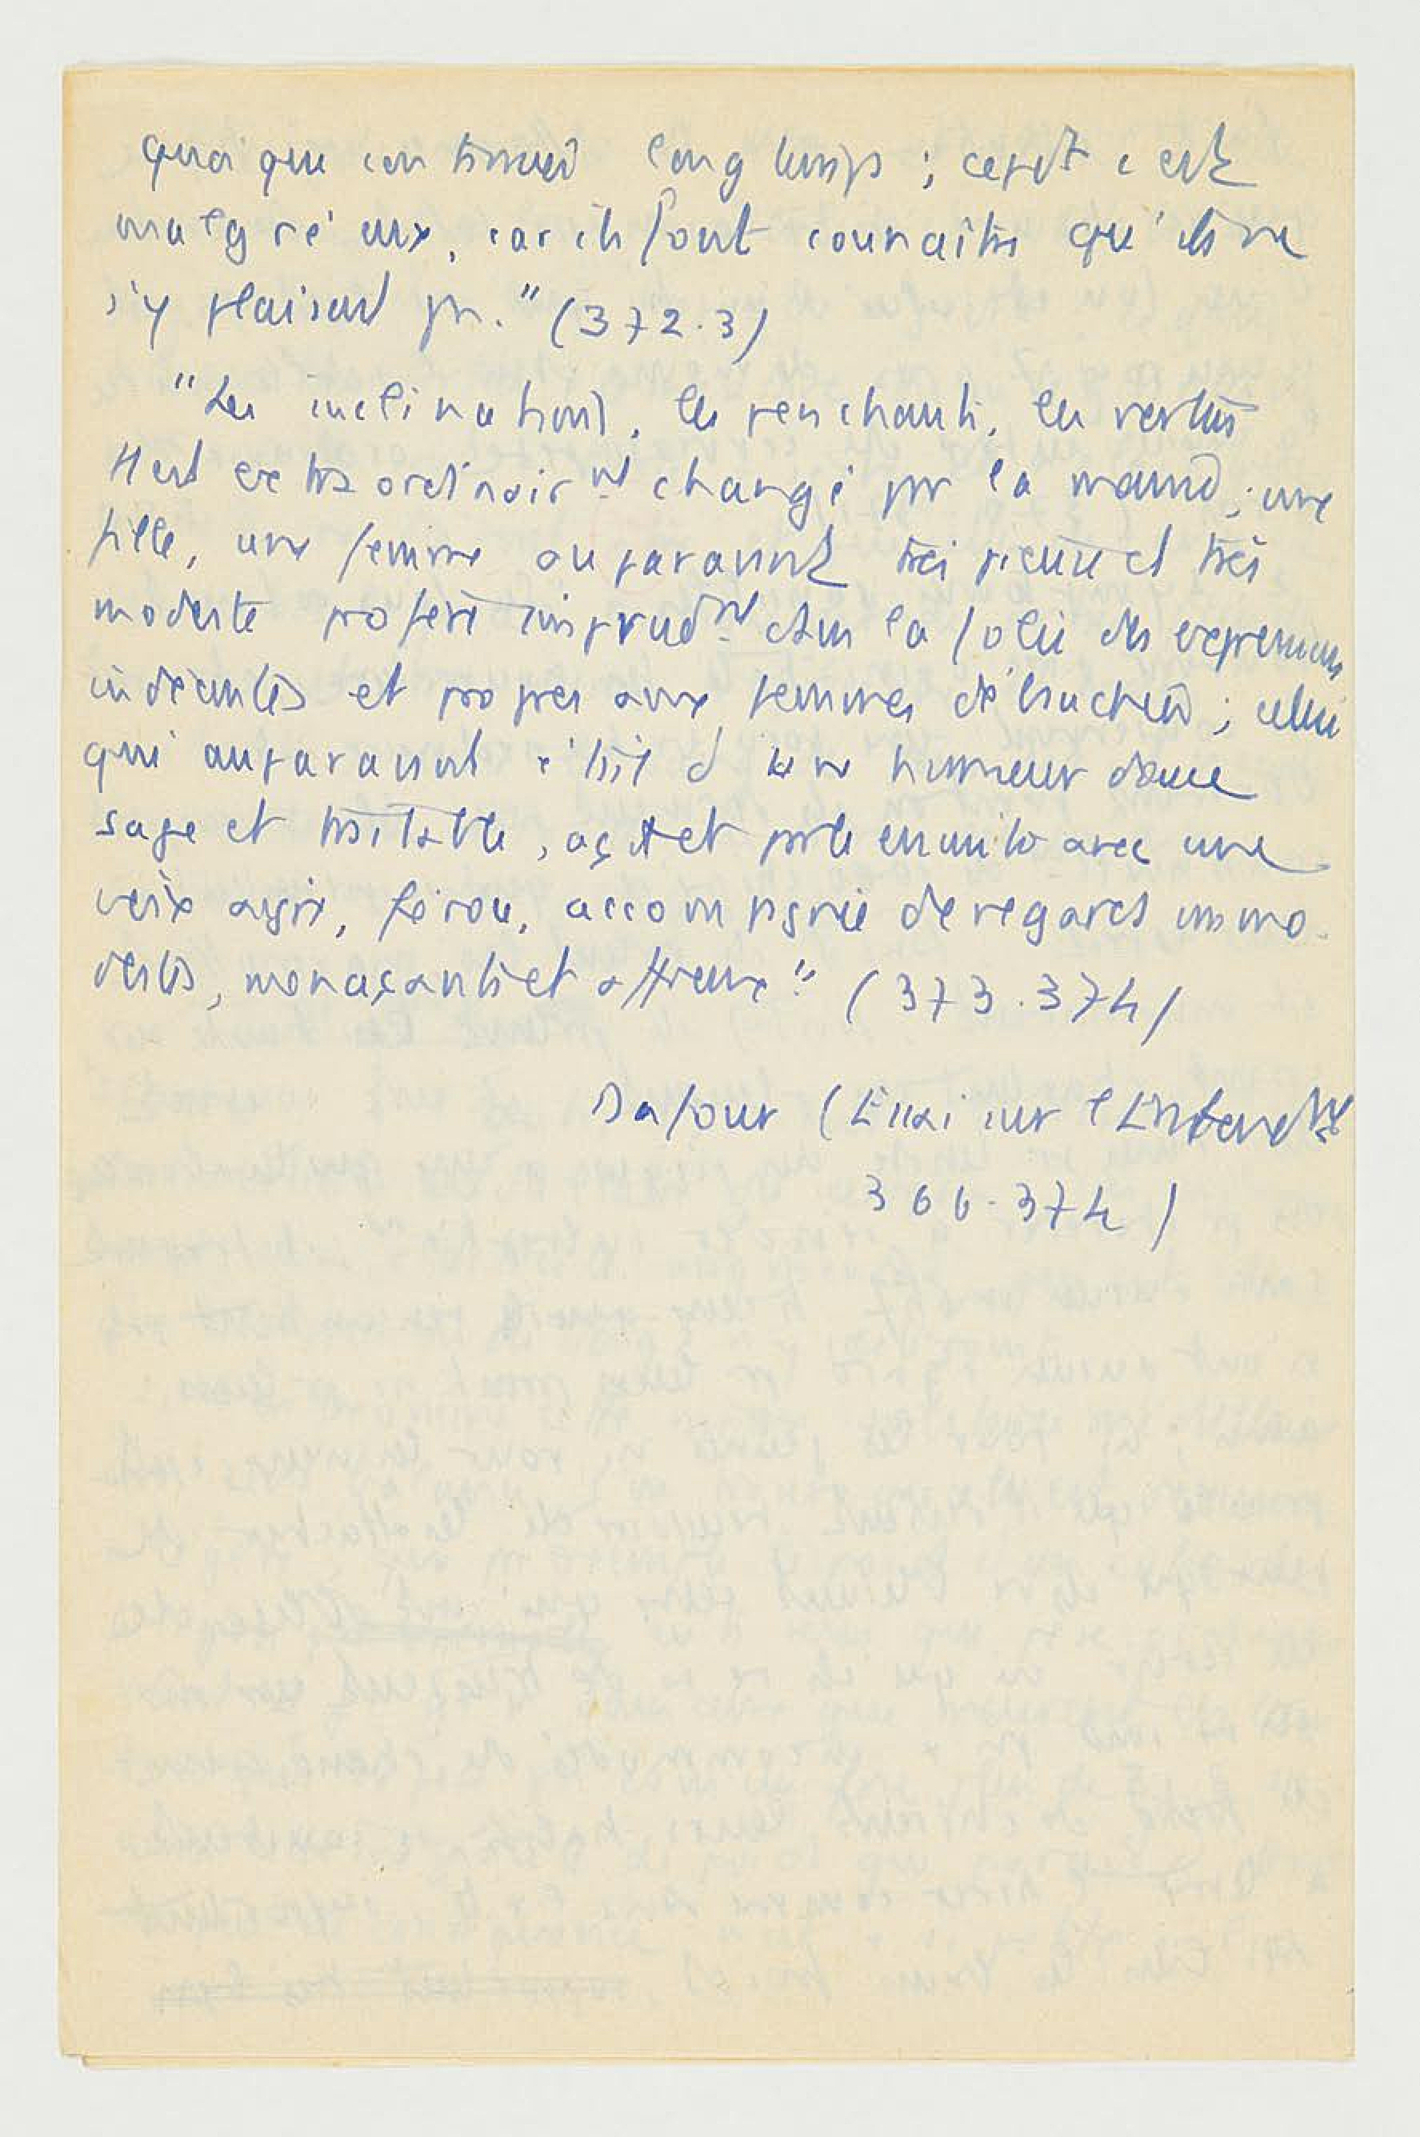 quoique continué longtemps ; cepdt c'est
malgré eux, car ils font connaître qu'ils ne
s'y plaisent pas." (372.3)
"Les inclinations, les penchants, les vertus
st extraordinairnt changés par la manie ; une
fille, une femme auparavant très pieuse et très
modeste profère imprudnt dans la folie des expressions
indécentes et propres aux femmes débauchées ; celui
qui auparavant était d'une humeur douce
sage et traitable, agit et parle ensuite avec une
voix aigre, féroce, accompagnée de regards immo-
destes, menaçants et affreux" (373.374)
Dufour (Essai sur l'Entendnt
366-374)